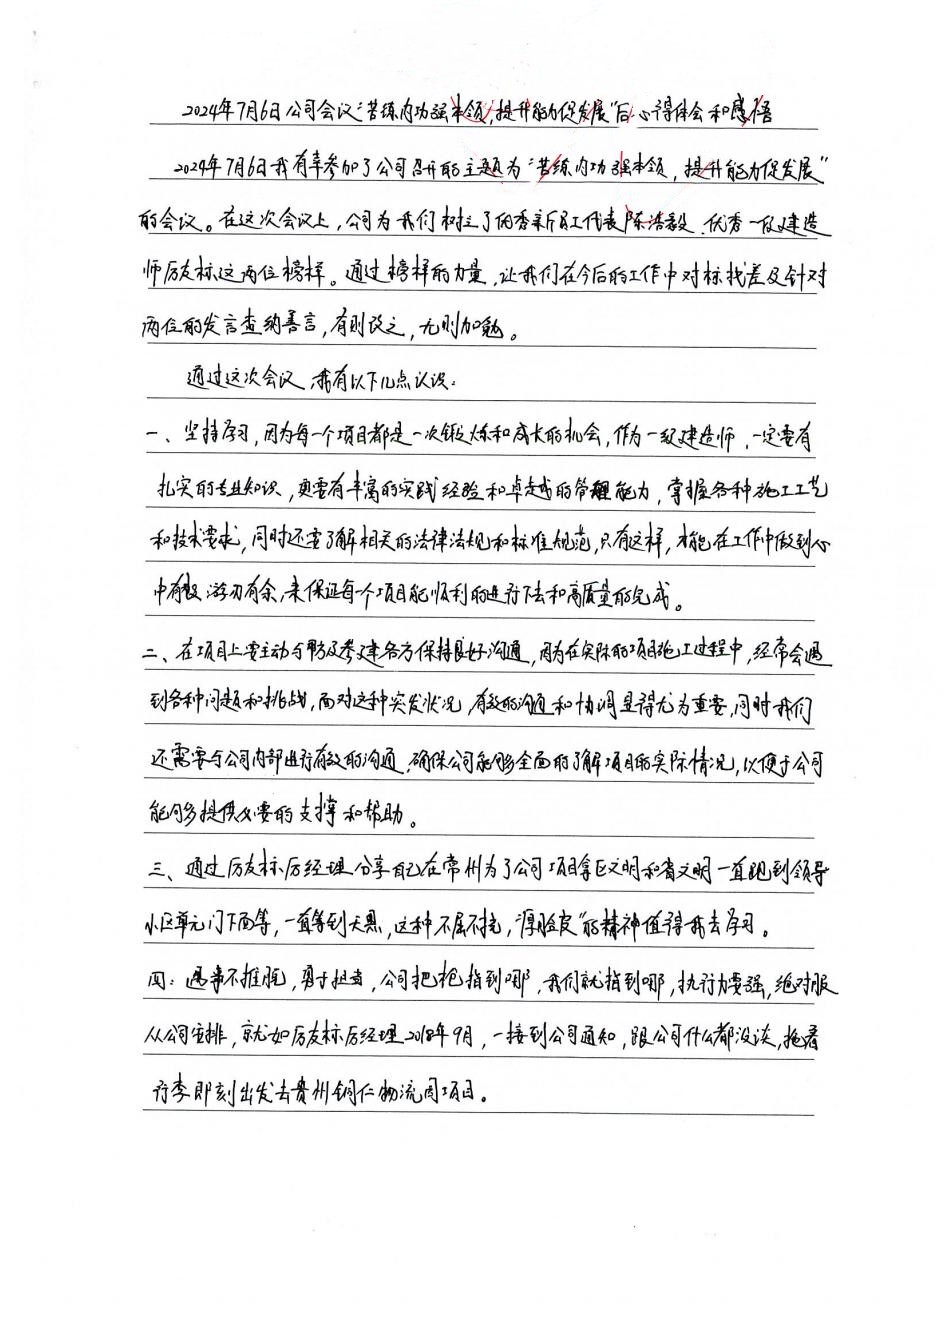 2024年7月6日公司会议“苦练内功强本领,提升能力促发展”后心得体会和感悟
2024年7月6日我有幸参加了公司召开的主题为“苦练内功强本领,提升能力促发展”
的会议。在这次会议上,公司为我们树立了优秀新员工代表陈浩毅、优秀一级建造
师厉友标这两位榜样。通过榜样的力量,让我们在今后的工作中对标找差及针对
两位的发言查纳善言,有则改之,无则加勉。
通过这次会议,我有以下几点认识:
一、坚持学习,因为每一个项目都是一次锻炼和成长的机会,作为一级建造师,一定要有
扎实的专业知识,更要有丰富的实践经验和卓越的管理能力,掌握各种施工工艺
和技术要求,同时还要了解相关的法律法规和标准规范,只有这样,才能在工作中做到心
中有数游刃有余,来保证每个项目能顺利的进行下去和高质量的完成。
二、在项目上要主动与甲方及参建各方保持良好沟通,因为在实际的项目施工过程中,经常会遇
到各种问题和挑战,面对这种突发状况,有效的沟通和协调显得尤为重要,同时我们
还需要与公司内部进行有效的沟通,确保公司能够全面的了解项目的实际情况,以便于公司
能够多提供必要的支撑和帮助。
三、通过厉友标厉经理分享自己在常州为了公司项目拿区文明和省文明一直跑到领导
小区单元门下面等,一直等到天黑,这种不屈不挠,“厚脸皮”的精神值得我去学习。
四:遇事不推脱,勇于担当,公司把枪指到哪,我们就指到哪,执行力要强,绝对服
从公司安排,就如厉友标厉经理2018年9月,一接到公司通知,跟公司什么都没谈,拖着
行李即刻出发去贵州铜仁物流园项目。